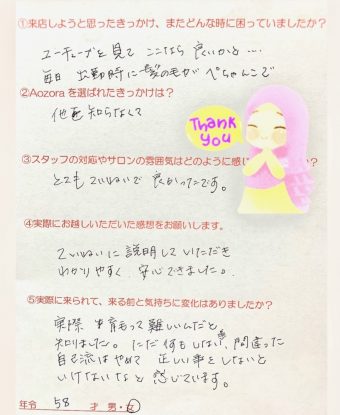 ①来店しようと思ったきっかけ、またどんな時に困っていましたか？
ユーチューブを見て ここなら 良いかと…
毎日 出勤時に髪の毛が ぺちゃんこで
②Aozoraを選ばれたきっかけは？
他を知らなくて
Thank
you
③スタッフの対応やサロンの雰囲気はどのように感じ か？
とてもていねいで 良かったです。
④実際にお越しいただいた感想をお願いします。
ていねいに 説明して いただき
わかりやすく 安心できました。
⑤実際に来られて、来る前と気持ちに変化はありましたか？
実際 生育もって難しいんだと
知りました。ただ何もしない、間違った
自己流はやめて 正しい事をしないと
いけないなと 感じています。
年令 58 才 男・女